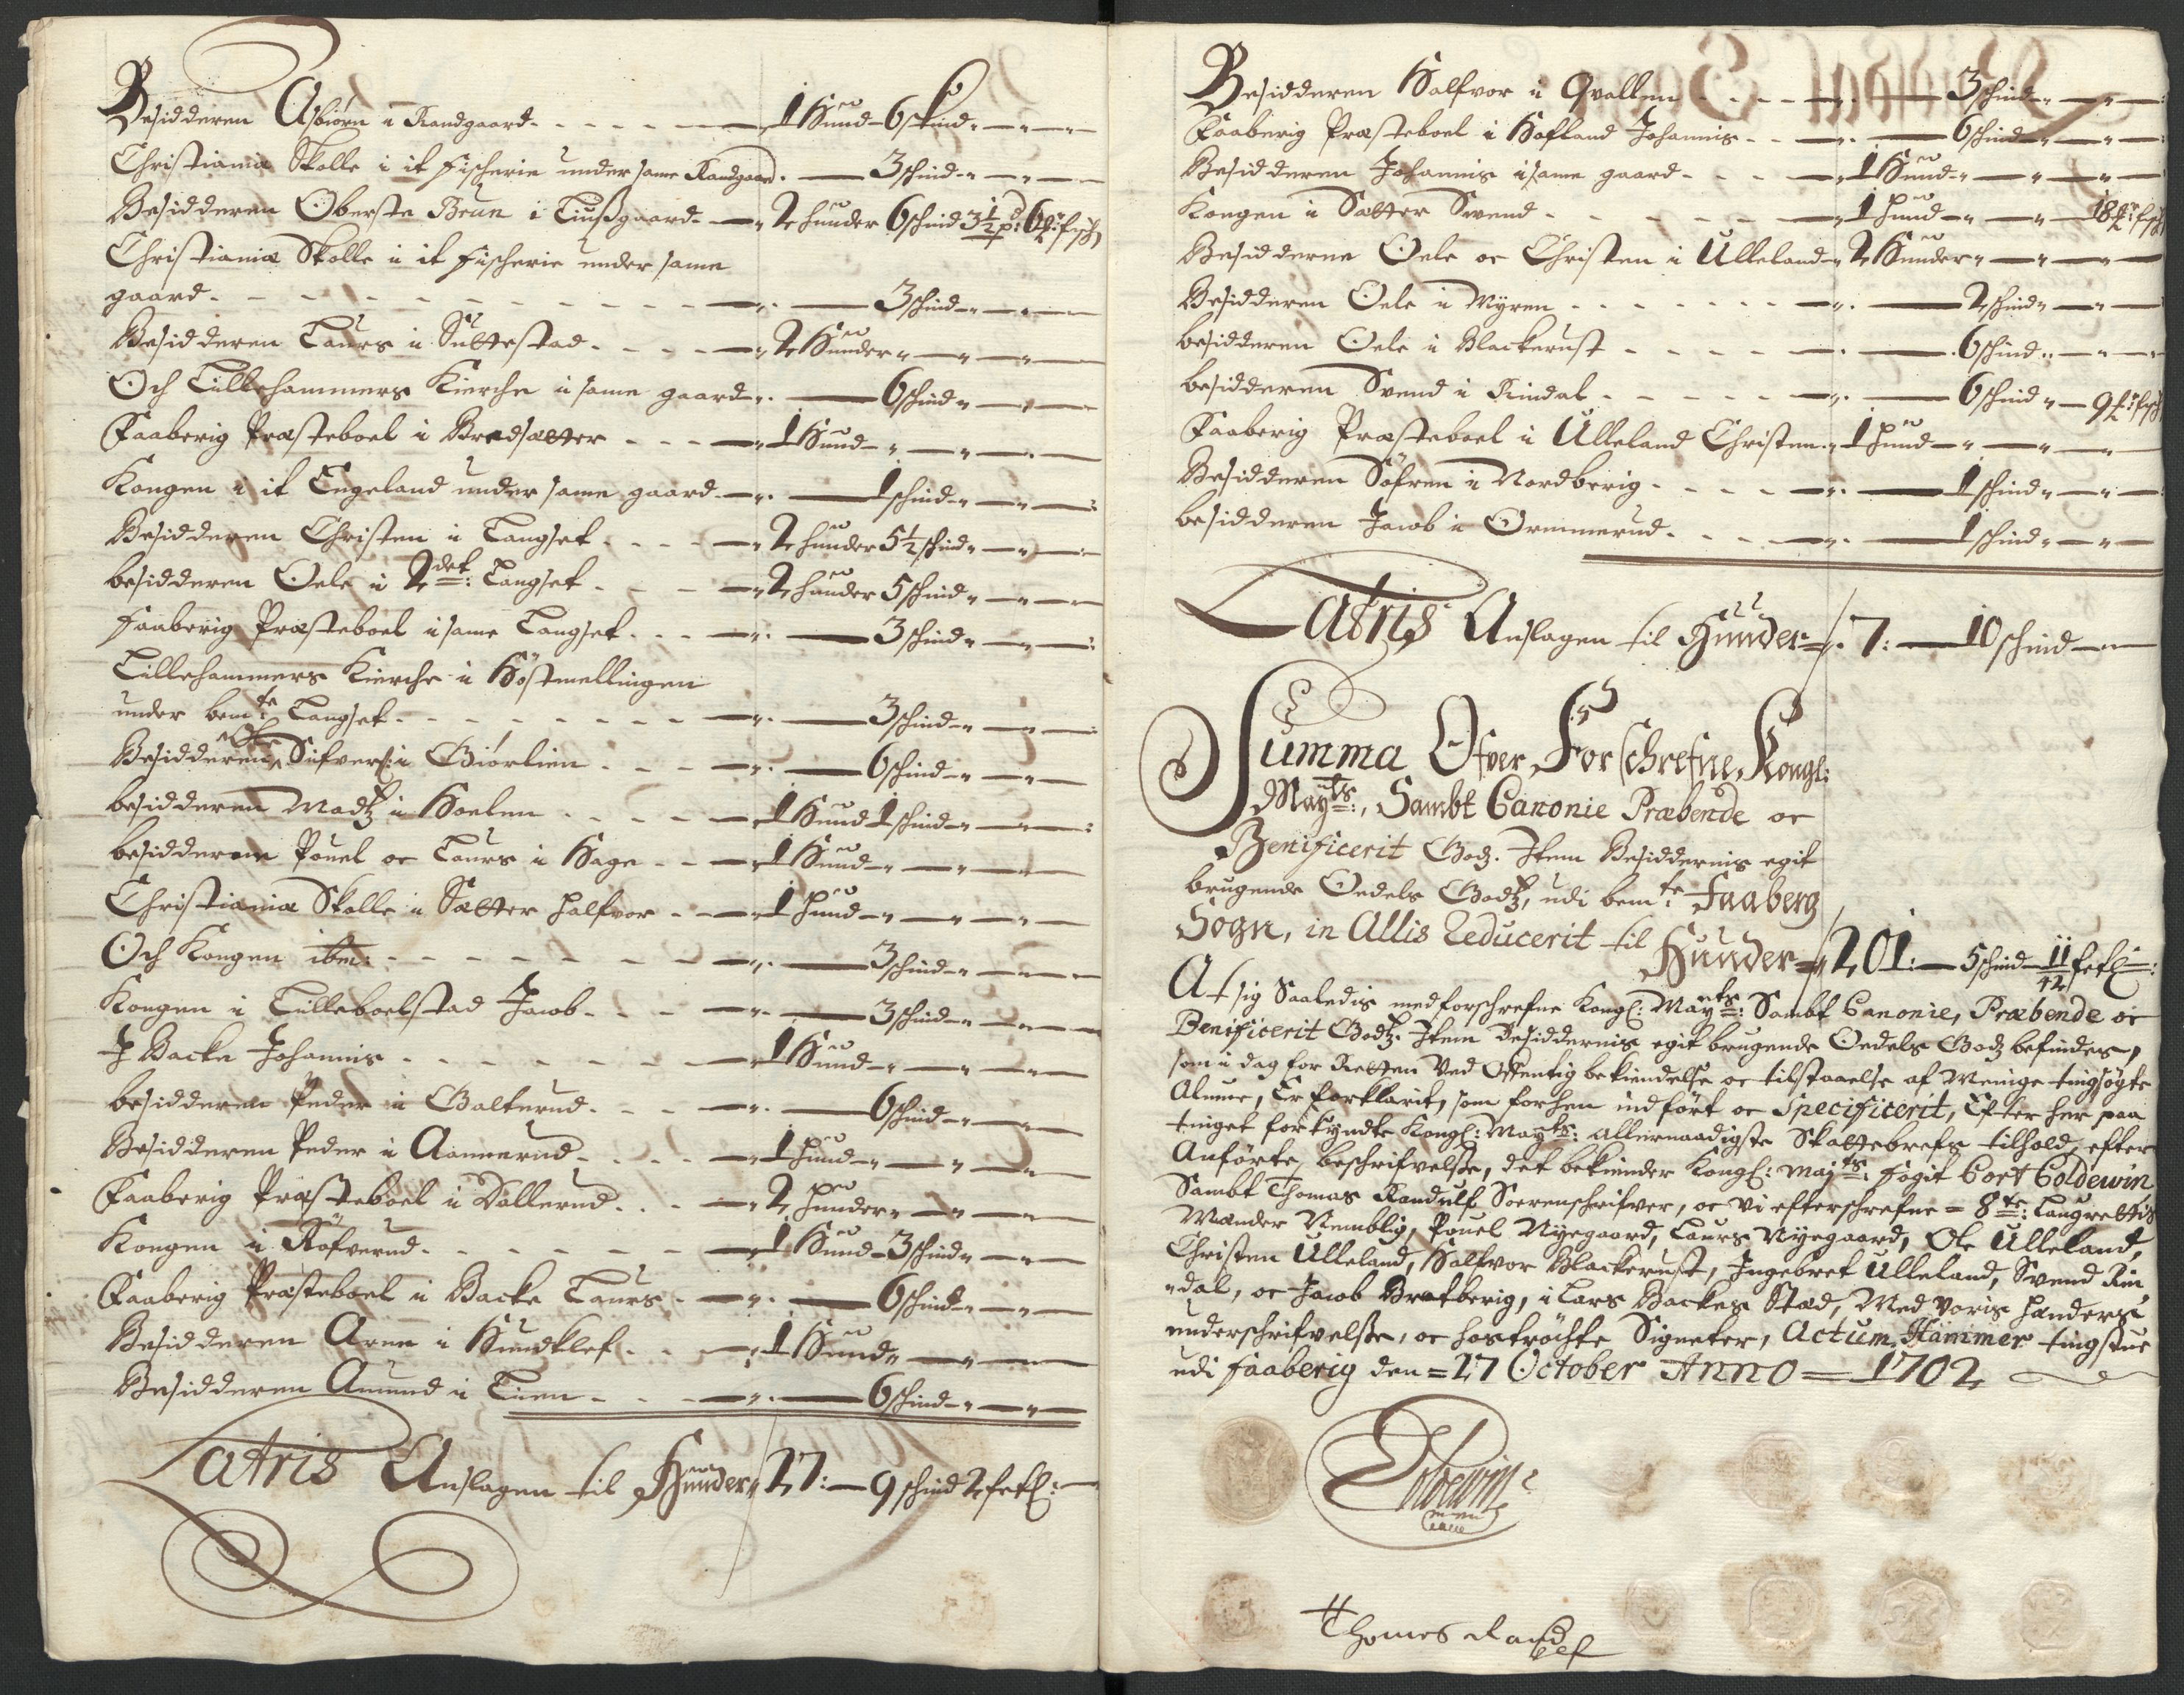 Besidderen Asbiørn i Randgaard - - - - 1 Hund - 6 skind - " - "
Christiania Skolle i it fischerie under same Randgaard - 3 schind - " - "
Besidderen Oberste Brun i Liusgaard - 2 hunder 6 schind 3½
Christiania Skolle i it fischerie under same
gaard - - - - - - 3 schind - " - "
Besidderen Laurs i Suttestad - - - 2 Hunder " - " - "
Och Lillehammers Kierche i same gaard - 6 schind " - "
Faaberig Præsteboel i Bredsætter - - - 1 Hund - " - " - "
Kongen i it Engeland under same gaard - 1 schind - " - "
Besidderen Christen i Langset - - - 2 hunder 5½ skind " - "
besidderen Oele i 2det: Langset - - - 2 hunder 5 schind " - "
Faaberig Præsteboel i same Langset - - 3 schind " - "
Lillehammers Kierche i Høstmellingen
under bemte Langset - - - - - - 3 schind - " - "
Besidderen Ole Sifvers: i Giørlien - - - 6 schind - " - "
besidderen Madtz i Hoelen - - - 1 Hund 1 schind - " - "
besidderne Pouel oc Laurs i Hage - - 1 Hund - " - " - "
Christiania Skolle i Sætter Halfvor - - 1 Hund - " - " - "
Och Kongen ibm: - - - - - 3 schind - " - "
Kongen i Lilleboelstad Jacob - - - 3 schind - " - "
I Backe Johannis - - - - - 1 Hund - " - " - "
besidderen Peder i Balterud - - - 6 schind - " - "
Besidderen Peder i Aannerud - - - 1 Hund - " - " - "
Faaberig Præsteboel i Dollerud - - - 2 Hunder " - " - "
Kongen i Røfverud - - - - - 1 Hund - 3 schind " - "
Faaberig Præsteboel i Backe Laurs - 6 schind - " - "
Besidderen Arne i Hundklef - - - 1 Hund " - " - "
Besidderen Amund i Lien - - - 6 schind - " - "
Latris Anslagen til Hunder " 27: - 9 schind 2
Besidderen Halfvor i Qvallen - - - - 3 schind " - "
Faaberig Præsteboel i Hofland Johannis - - 6 schind - " - "
Besidderen Johannis i same gaard - - - 1 Hund - " - " - "
Kongen i Sætter Svend - - - - 1 Hund - " - " - 18
Besidderne Oele oc Christen i Ulleland - 2 Hunder " - " - "
Besidderen Oele i Myren - - - - - 2 schind " - "
besidderen Oele i Blackerust - - - - 6 schind " - "
besidderen Svend i Rindal - - - - 6 schind " - 9
Faaberig Præsteboel i Ulleland Christen " 1 Hund - " - " - "
Besidderen Söfren i Nordberig - - - - 1 schind " - "
besidderen Jacob i Oremmerud - - - - 1 schind " - "
Latris Anslagen til Hunder = 7: - 10 schind -
Summa Ofver Forschrefne Kongl:
Mayts:, Sambt Canonie Præbende oc
Benificerit Godz. Item Besiddernis egit
brugende Oedels Godtz, udi bemte: Faaberg
Sogn, in Allis Reducerit til Hunder = 201: - 5 schind - 11/42
At sig Saaledis med forschrefne Kongl: Mayts: Sambt Canonie, Præbende oc
Benificerit Godtz. Item Besiddernis egit brugende Oedels Godz befindes,
som i dag for Retten Ved Offentlig bekiendelse oc tilstaaelse af Menige tingsøgte
Almue, Er forklarit, som forhen indført oc Specificerit, Efter her paa
tinget forkyndte Kongl: Mayts: Allernaadigste Skattebrefs tilhold, efter
Anførte beschrifvelse, det bekiender Kongl: Majts: fogit Cort Coldewin
Sambt Thomas Randulf Sorenschrifver, oc Vi efterschrefne = 8te: Laugrettis
Mænder Nemblig, Pouel Nyegaard, Laurs Nyegaard, Ole Ulleland,
Christen Ulleland, Halfvor Blackerust, Ingebret Ulleland, Svend Rin
"dal, oc Jacob Bratberig, i Lars Backes Stæd, Med Voris hænders
underschrifvelsse, oc hostrøchte Signeter, Actum Hammer tingstue
udi Faaberig den = 27 October Anno = 1702
Coldewin
Thomes Randulf